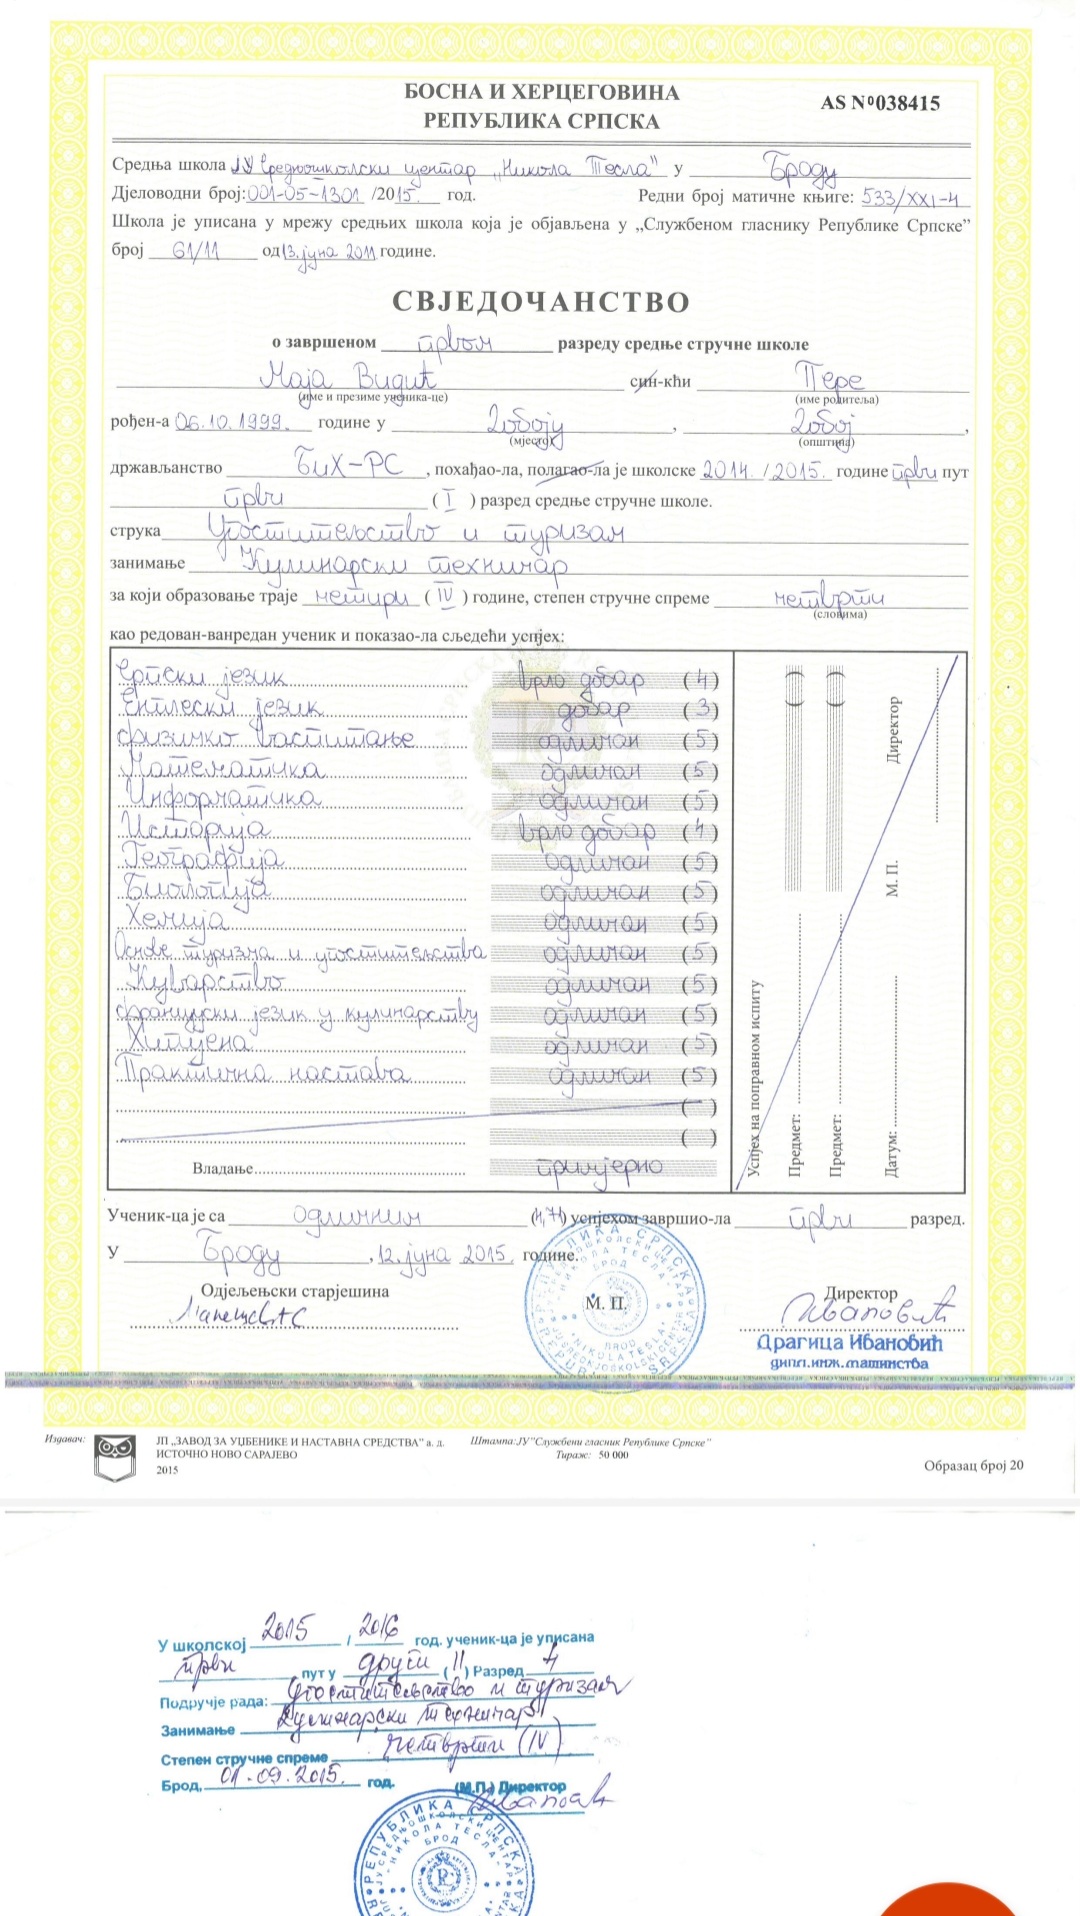 БОСНА И ХЕРЦЕГОВИНА
РЕПУБЛИКА СРПСКА
AS Nº038415
Средња школа ЈУ Средњошколски центар „Никола Тесла" у Броду
Дјеловодни број: 001-05-1301 /2015. год. Редни број матичне књиге: 533/XXI-4
Школа је уписана у мрежу средњих школа која је објављена у „Службеном гласнику Републике Српске”
број 61/11 од 13. јуна 2011 године.
СВЈЕДОЧАНСТВО
о завршеном првом разреду средње стручне школе
Маја Видић син-кћи Пере
(име и презиме ученика-це) (име родитеља)
рођен-а 06.10.1999. године у Добоју, Добој,
(мјесто) (општина)
држављанство БиХ-РС, похађао-ла, полагао-ла је школске 2014. / 2015. године први пут
први ( I ) разред средње стручне школе.
струка Угоститељство и туризам
занимање Кулинарски техничар
за који образовање траје четири ( IV ) године, степен стручне спреме четврти
(словима)
као редован-ванредан ученик и показао-ла сљедећи успјех:
Српски језик врло добар (4)
Енглески језик добар (3)
Физичко васпитање одличан (5)
Математика одличан (5)
Информатика одличан (5)
Историја врло добар (4)
Географија одличан (5)
Биологија одличан (5)
Хемија одличан (5)
Основе туризма и угоститељства одличан (5)
Куварство одличан (5)
Француски језик у кулинарству одличан (5)
Хигијена одличан (5)
Практична настава одличан (5)
( )
( )
Владање примјерно
Успјех на поправном испиту
Предмет: ( )
Предмет: ( )
Датум: М. П. Директор
Ученик-ца је са одличним (4,71) успјехом завршио-ла први разред.
У Броду, 12. јуна 2015. године.
Одјељенски старјешина
М. П.
Директор
Ивановић
Драгица Ивановић
дипл.инж.машинства
РЕПУБЛИКА СРПСКА
НИКОЛА ТЕСЛА
БРОД
Издавач:
ЈП „ЗАВОД ЗА УЏБЕНИКЕ И НАСТАВНА СРЕДСТВА” а. д.
ИСТОЧНО НОВО САРАЈЕВО
2015
Штампа: ЈУ"Службени гласник Републике Српске"
Тираж: 50 000
Образац број 20
У школској 2015 / 2016 год. ученик-ца је уписана
први пут у други ( II ) Разред 4
Подручје рада: Угоститељство и туризам
Занимање Кулинарски техничар
Степен стручне спреме четврти (IV)
Брод, 01.09.2015. год. (М.П.) Директор
Ивановић
РЕПУБЛИКА СРПСКА
ЈУ СРЕДЊОШКОЛСКИ ЦЕНТАР
"НИКОЛА ТЕСЛА"
БРОД